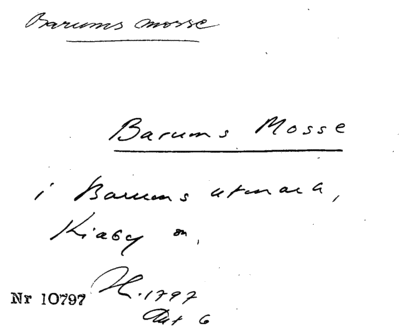 Barums mosse
Barums Mosse
i Barums utmark,
Kiaby sn.
Nr 10797
H. 1797
Akt 6